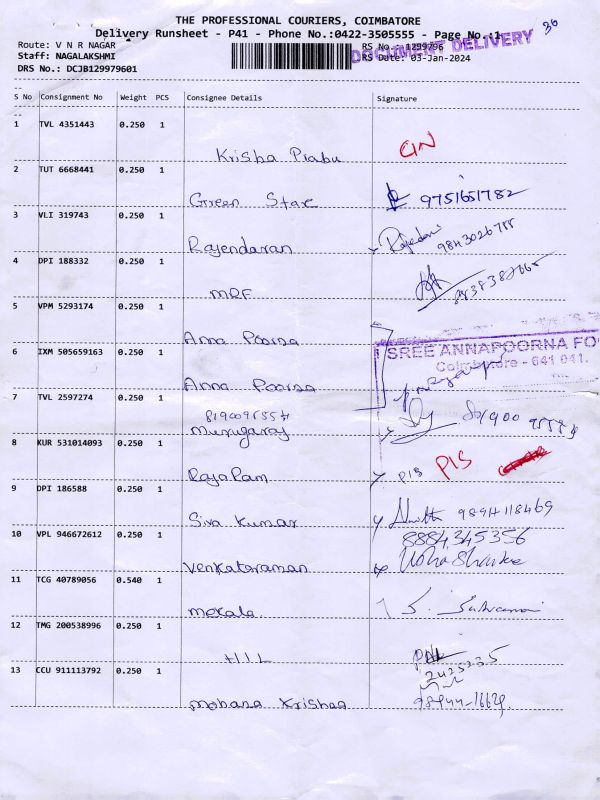 36
THE PROFESSIONAL COURIERS, COIMBATORE
Delivery Runsheet - P41 - Phone No.:0422-3505555 - Page No.:1
DOCUMENT DELIVERY
Route: V N R NAGAR RS No. 1299796
Staff: NAGALAKSHMI RS Date: 03-Jan-2024
DRS No.: DCJB129979601
S No Consignment No Weight PCS Consignee Details Signature
1 TVL 4351443 0.250 1
Krisha Prabu
2 TUT 6668441 0.250 1
Green Star 9751651782
3 VLI 319743 0.250 1
Rajendaran 9843026755
4 DPI 188332 0.250 1
MRF
5 VPM 5293174 0.250 1
Anna Poorna
SREE ANNAPOORNA FO
6 IXM 505659163 0.250 1
Coimbatore - 641 041.
Anna Poorna
7 TVL 2597274 0.250 1
Murugaraj
8 KUR 531014093 0.250 1
PIS PIS
RajaRam
9 DPI 186588 0.250 1
Siva Kumar 9894118469
10 VPL 946672612 0.250 1
8884345356
Venkataraman
11 TCG 40789056 0.540 1
Mekala
12 TMG 200538996 0.250 1
HIL
2425235
13 CCU 911113792 0.250 1
Mohana Krishna 98944-16629